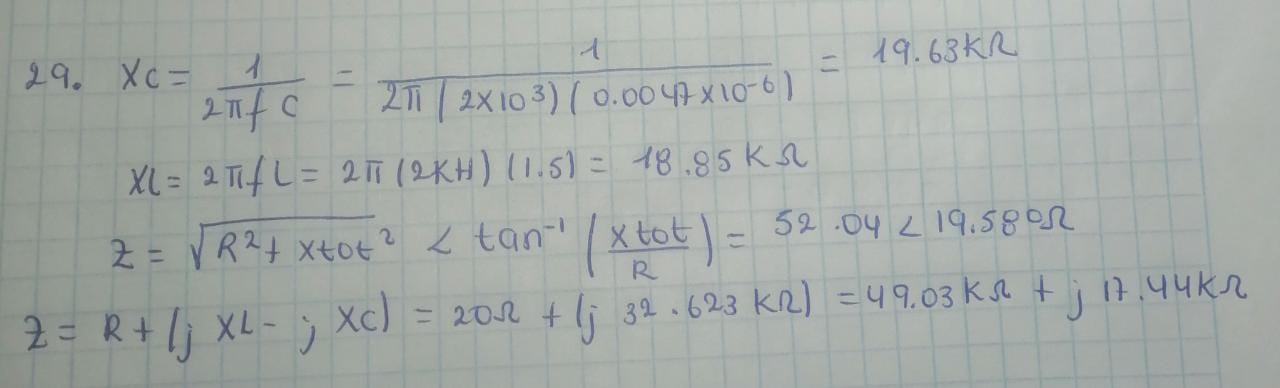 29. XC = 1 / 2πfC = 1 / 2π(2x10³)(0.0047x10⁻⁶) = 19.63KΩ
XL = 2πfL = 2π(2KH)(1.5) = 18.85KΩ
Z = √R²+Xtot² < tan⁻¹ (Xtot / R) = 52.04 < 19.580Ω
Z = R + (j XL - j XC) = 20Ω + (j 32.623KΩ) = 49.03KΩ + j 17.44KΩ